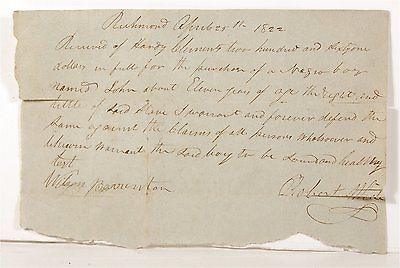 Richmond April 25th 1822
Received of Hardy Clements two hundred and sixty one
dollars in full for the purchase of a Negro boy
named John about Eleven years of age the right and
tittle of Said Slave I warrant and forever defend the
Same against the Claims of all persons Whatsoever and
likewise warrant the Said boy to be Sound and healthy
test
Wilson
Robert